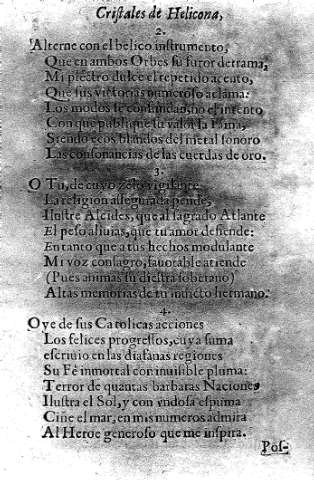 Cristales de Helicona,
2.
Alterne con el belico instrumento,
Que en ambos Orbes su furor derrama,
Mi plectro dulce el repetido acento,
Que sus victorias numeroso aclama:
Los modos se confundan, no el intento
Con que publique su valor la Fama,
Siendo ecos blandos del metal sonoro
Las consonancias de las cuerdas de oro.
3.
O Tu, de cuyo zelo vigilante
La religion assegurada pende,
Ilustre Alcides, que al sagrado Atlante
El peso alivias, que tu amor defiende:
En tanto que a tus hechos modulante
Mi voz consagro, fauorable atiende
(Pues animas su diestra soberano)
Altas memorias de tu inuicto hermano.
4.
Oye de sus Catolicas acciones
Los felices progressos, cuya suma
escriuio en las diafanas regiones
Su Fè inmortal con inuisible pluma:
Terror de quantas barbaras Naciones
Ilustra el Sol, y con vndosa espuma
Ciñe el mar, en mis numeros admira
Al Heroe generoso que me inspira.
Pos-